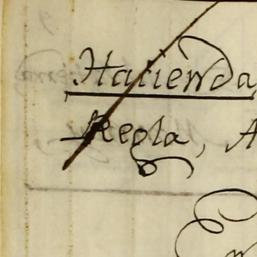 Hacienda
Regla, A
E